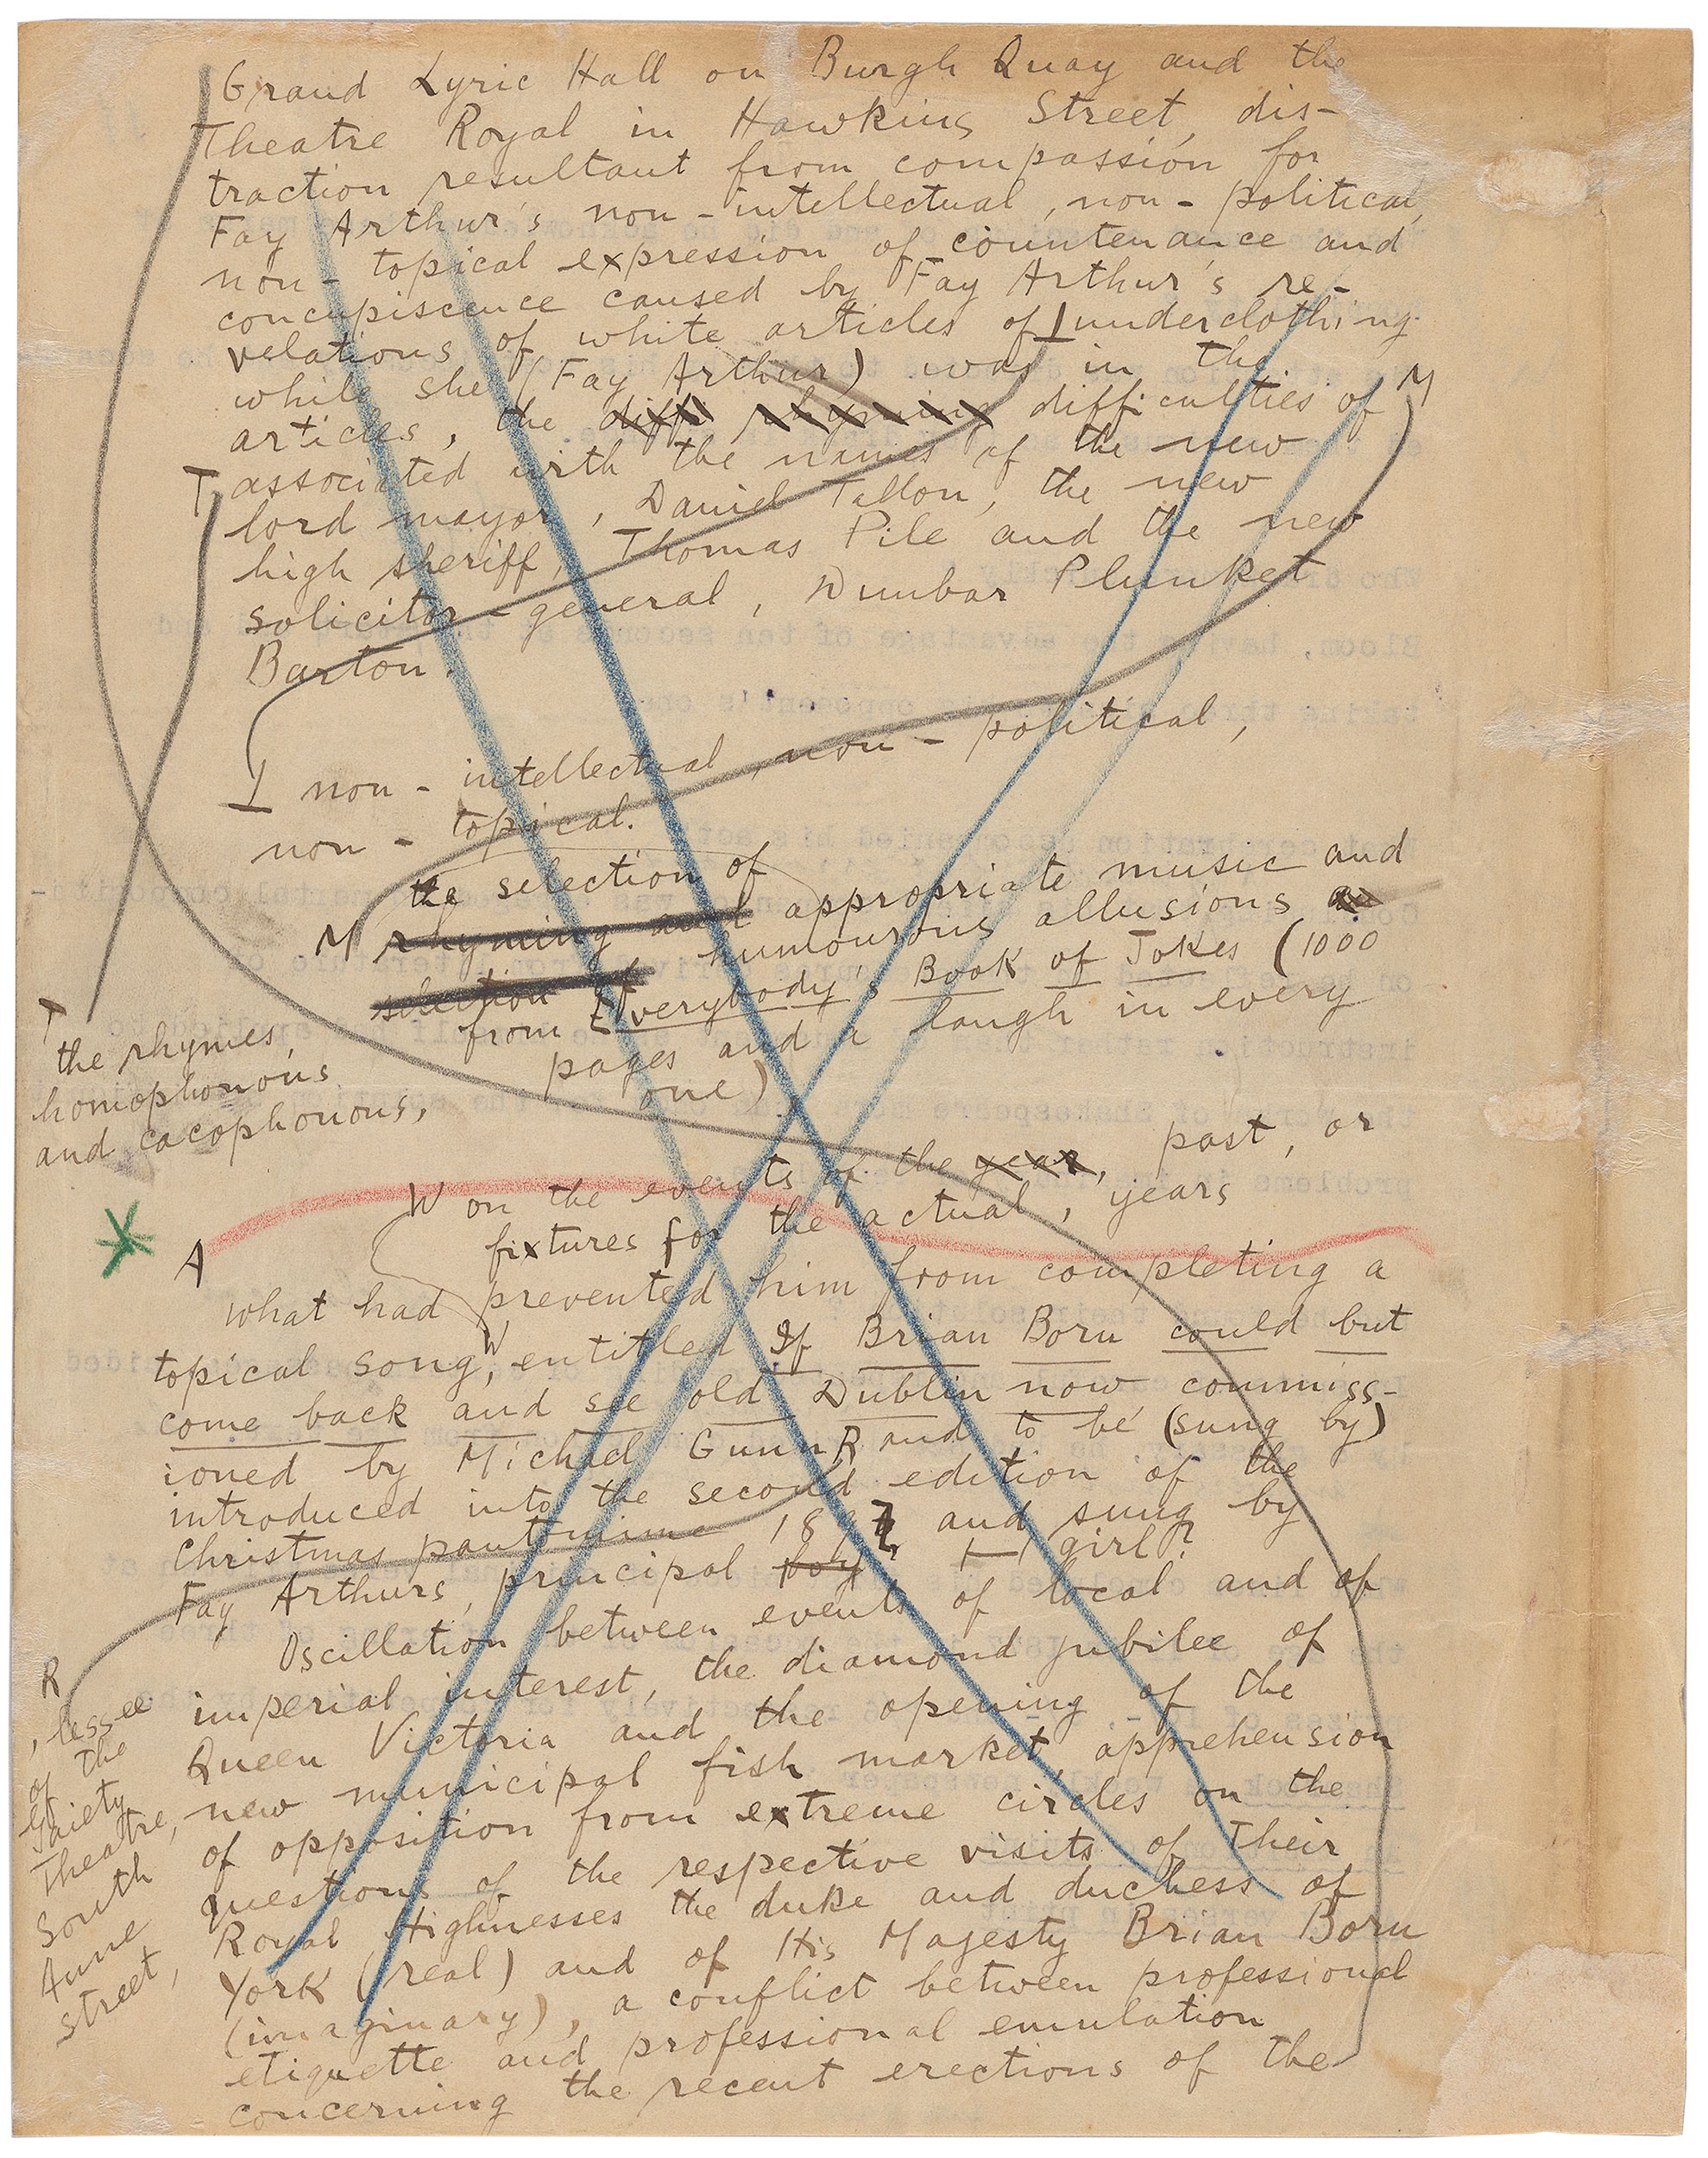 Grand Lyric Hall on Burgh Quay and the
Theatre Royal in Hawkins Street, dis-
traction resultant from compassion for
Fay Arthur's non-intellectual, non-political,
non-topical expression of countenance and
concupiscence caused by Fay Arthur's re-
velations of white articles of I underclothing
while she (Fay Arthur) was in the
articles, the diffi rhyming difficulties of M
T associated with the names of the new
lord mayor, Daniel Tallon, the new
high sheriff, Thomas Pile and the new
solicitor-general, Dunbar Plunket
Barton.
I non-intellectual, non-political,
non-topical.
the selection of
M rhyming and appropriate music and
selection of humourous allusions
from Everybody's Book of Jokes (1000
pages and a laugh in every
one)
T
the rhymes,
homophonous
and cacophonous,
W on the events of the year, past, or
fixtures for the actual, years
A
what had prevented him from completing a
topical song, W entitled If Brian Boru could but
come back and see old Dublin now commiss-
ioned by Michael Gunn R and to be (sung by)
introduced into the second edition of the
Christmas pantomime 1897 and sung by
Fay Arthurs, principal boy girl?
Oscillation between events of local and of
imperial interest, the diamond jubilee of
Queen Victoria and the opening of the
new municipal fish market, apprehension
of opposition from extreme circles on the
questions of the respective visits of Their
Royal Highnesses the duke and duchess of
York (real) and of His Majesty Brian Boru
(imaginary), a conflict between professional
etiquette and professional emulation
concerning the recent erections of the
R
, lessee
of the
Gaiety
Theatre,
South
Anne
street,